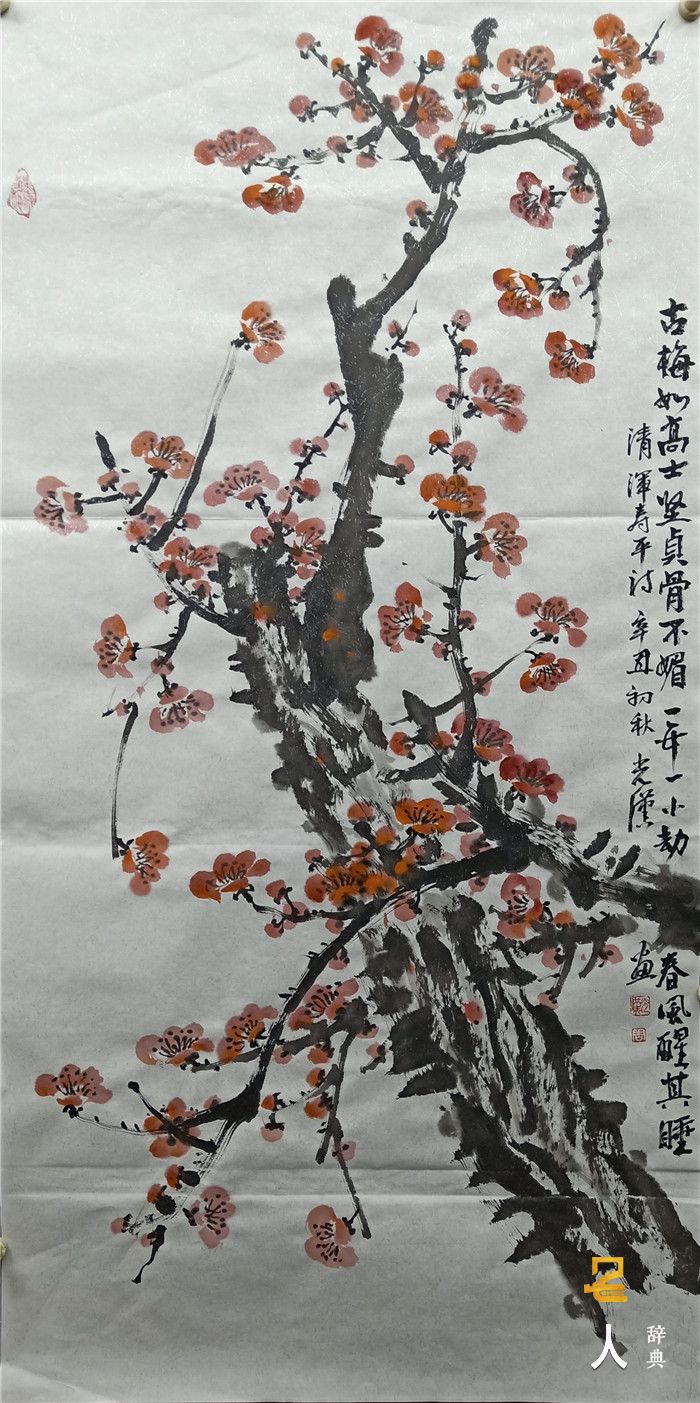 古梅如高士坚贞骨不媚一年一小劫春风醒其睡
清浑寿平诗辛丑初秋光漢画
名人
辞典